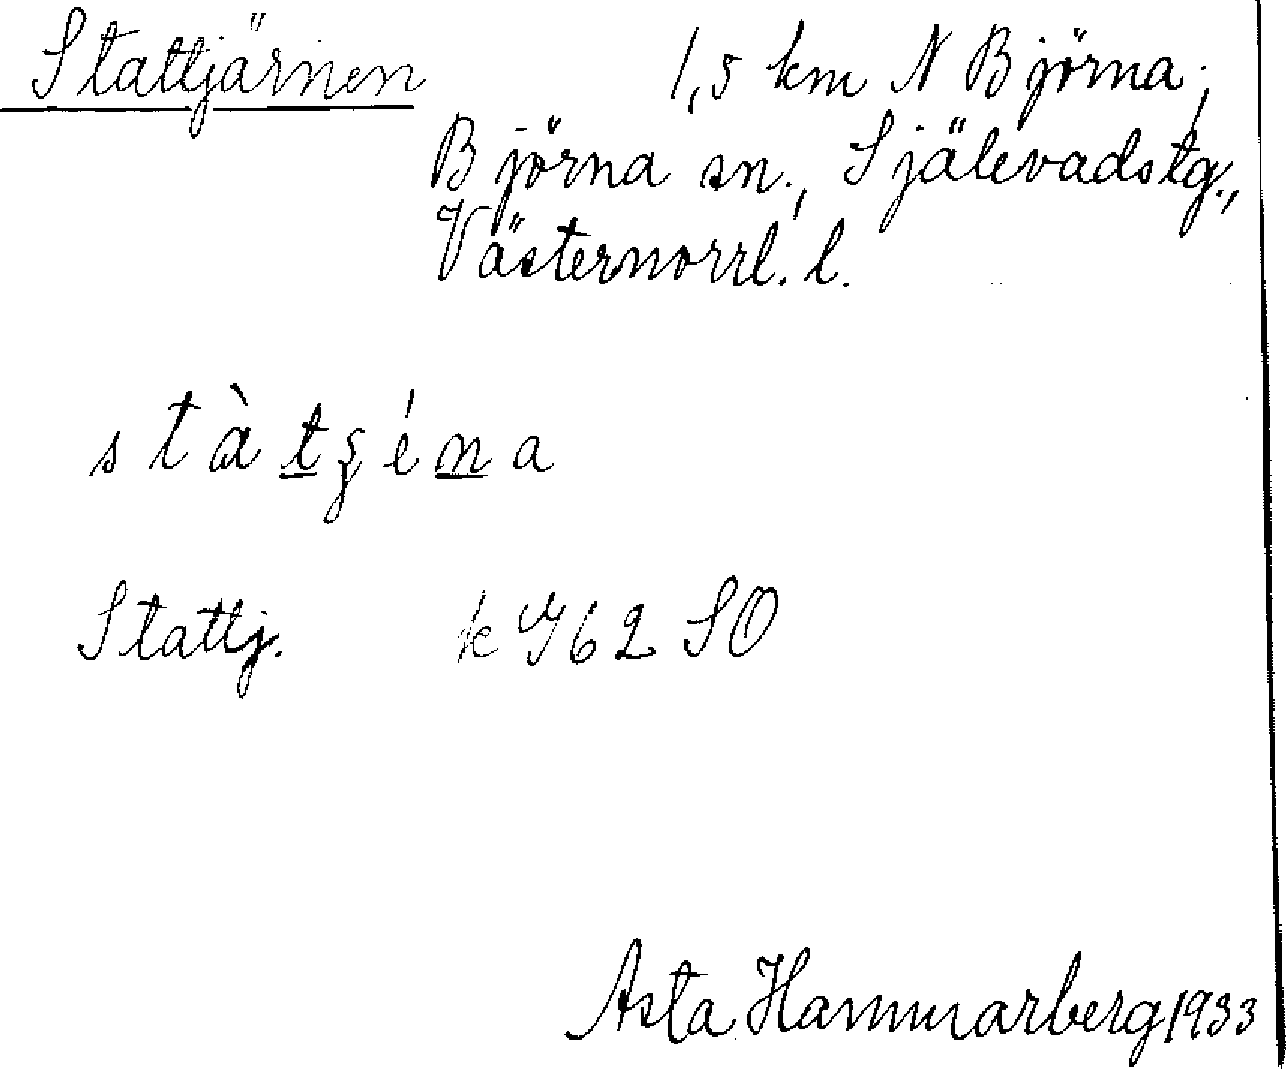 Stattjärnen 1,5 km N Björna;
Björna sn., Själevadstg.,
Västernorrl. l.
s t à t ʂ é n a
Stattj. k 962 SO
Asta Hammarberg 1933